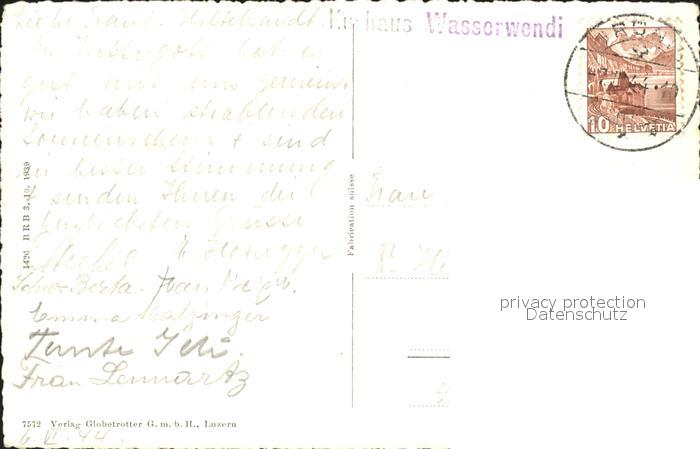 Liebe Frau P. Hildebrandt
Kurhaus Wasserwendi
Der Wettergott hat es
gut mit uns gemeint
wir haben strahlenden
Sonnenschein + sind
in bester Stimmung
+ senden Ihnen die
herzlichsten Grüsse
E Honegger
Schw. Berta. Frau
Emma Matzinger
Tante
Frau Lennartz
7572 Verlag Globetrotter G. m. b. H., Luzern
6. VI. 44.
1426 BRB 3. 10. 1939
Fabrication suisse
10 HELVETIA
Frau
P. H
privacy protection
Datenschutz